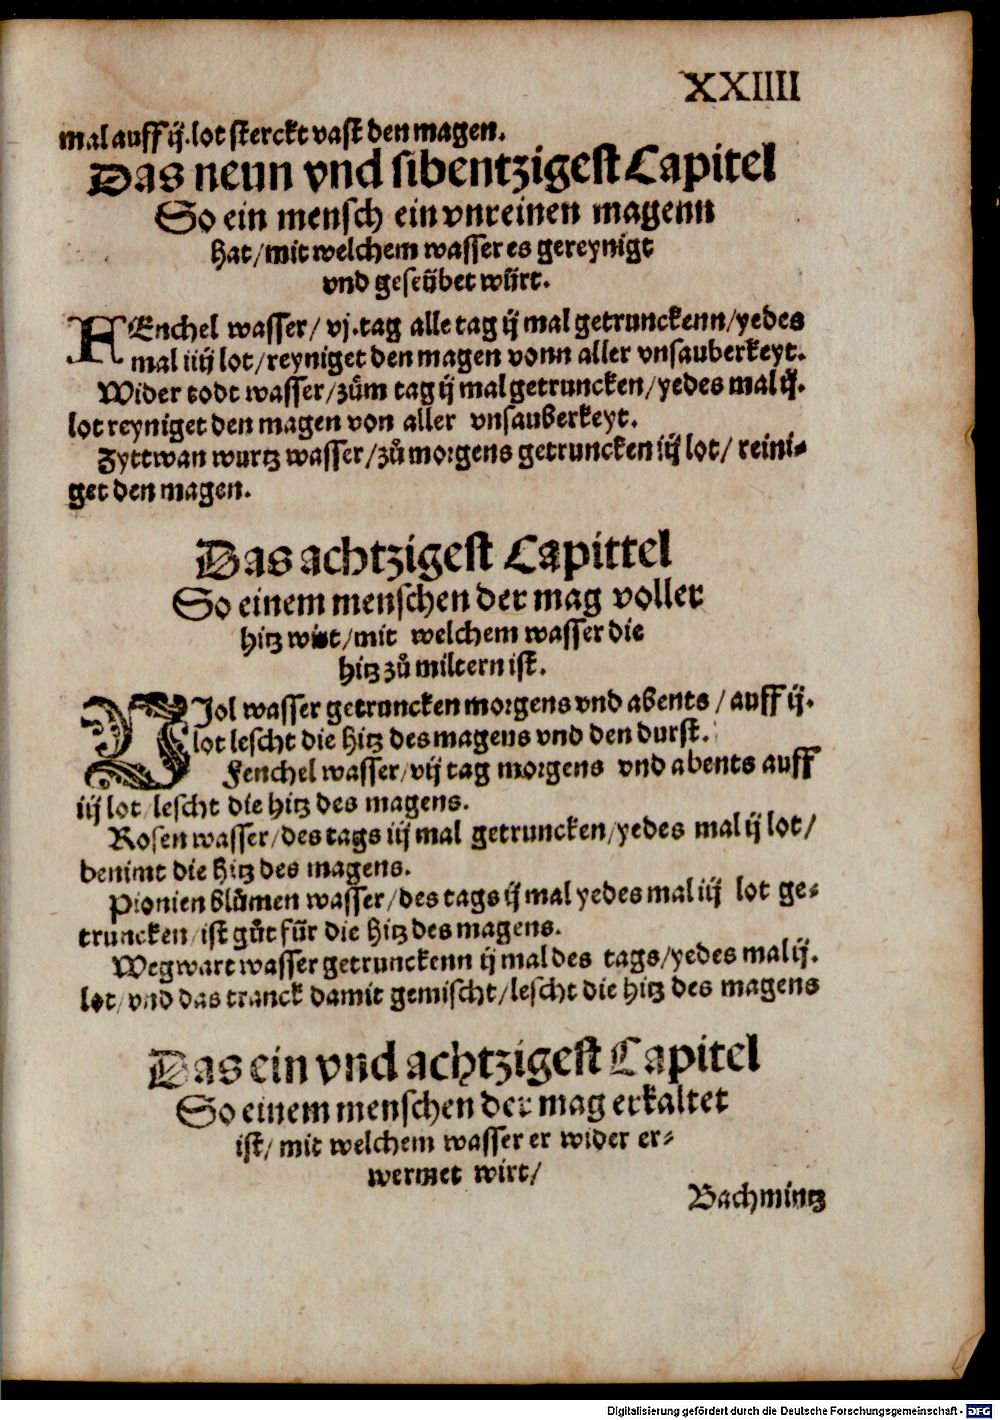 XXIIII
mal auff ij. lot sterckt vast den magen.
Das neun vnd sibentzigest Capitel
So ein mensch ein vnreinen magenn
hat/mit welchem wasser es gereynigt
vnd geseübet würt.
FEnchel wasser/ vj. tag alle tag ij mal getrunckenn/yedes
mal iiij lot/reyniget den magen vonn aller vnsauberkeyt.
Wider todt wasser/zům tag ij mal getruncken/yedes mal ij.
lot reyniget den magen von aller vnsauberkeyt.
Zyttwan wurtz wasser/zů morgens getruncken iij lot/ reini⸗
get den magen.
Das achtzigest Capittel
So einem menschen der mag voller
hitz wirt/mit welchem wasser die
hitz zů miltern ist.
VJol wasser getruncken morgens vnd abents / auff ij.
lot lescht die hitz des magens vnd den durst.
Fenchel wasser/vij tag morgens vnd abents auff
iij lot/lescht die hitz des magens.
Rosen wasser/des tags iij mal getruncken/yedes mal ij lot/
benimt die hitz des magens.
Pionien blůmen wasser/des tags ij mal yedes mal iij lot ge⸗
truncken/ist gůt für die hitz des magens.
Wegwart wasser getrunckenn ij mal des tags/yedes mal ij.
lot/vnd das tranck damit gemischt/lescht die hitz des magens
Das ein vnd achtzigest Capitel
So einem menschen der mag erkaltet
ist/ mit welchem wasser er wider er⸗
wermet wirt/
Bachmintz
Digitalisierung gefördert durch die Deutsche Forschungsgemeinschaft - DFG